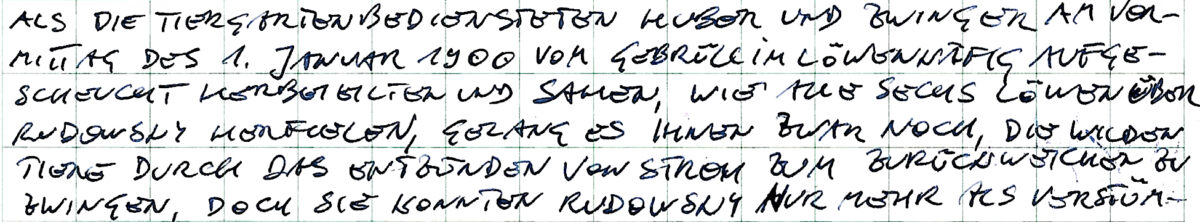 ALS DIE TIERGARTENBEDIENSTETEN HUBER UND ZWINGER AM VOR-
MITTAG DES 1. JANUAR 1900 VOM GEBRÜLL IM LÖWENKÄFIG AUFGE-
SCHEUCHT HERBEIEILTEN UND SAHEN, WIE ALLE SECHS LÖWEN ÜBER
RUDOWSKY HERFIELEN, GELANG ES IHNEN ZWAR NOCH, DIE WILDEN
TIERE DURCH DAS ENTZÜNDEN VON STROH ZUM ZURÜCKWEICHEN ZU
ZWINGEN, DOCH SIE KONNTEN RUDOWSKY NUR MEHR ALS VERSTÜM-